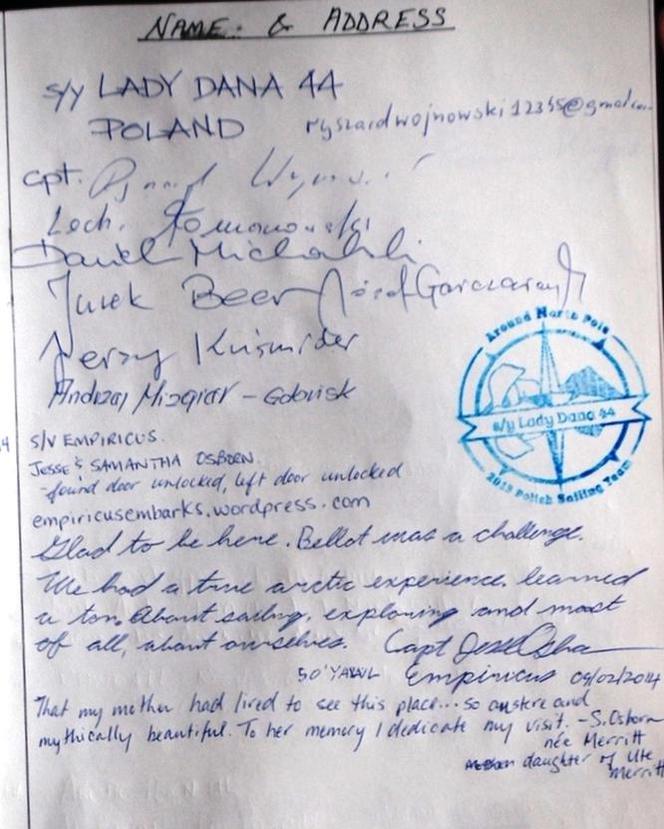 NAME & ADDRESS
s/y LADY DANA 44
POLAND ryszardwojnowski12345@gmail.com
cpt.
Lech. Romanowski
Daniel Michalski
Jurek Beer Józef Garczarczyk
Jerzy Kuśmider
Andrzej Mizgier - Gdańsk
Around North Pole
s/y Lady Dana 44
2013 Polish Sailing Team
4 S/V EMPIRICUS.
JESSE & SAMANTHA OSBORN.
-found door unlocked, left door unlocked
empiricusembarks.wordpress.com
Glad to be here. Bellot was a challenge.
We had a true arctic experience, learned
a ton. About sailing, exploring and most
of all, about ourselves. Capt Jesse Osborn
50' YAWL Empiricus 09/02/2014
That my mother had lived to see this place... so austere and
mythically beautiful. To her memory I dedicate my visit. -S. Osborn
née Merritt
daughter of Ute
Merritt